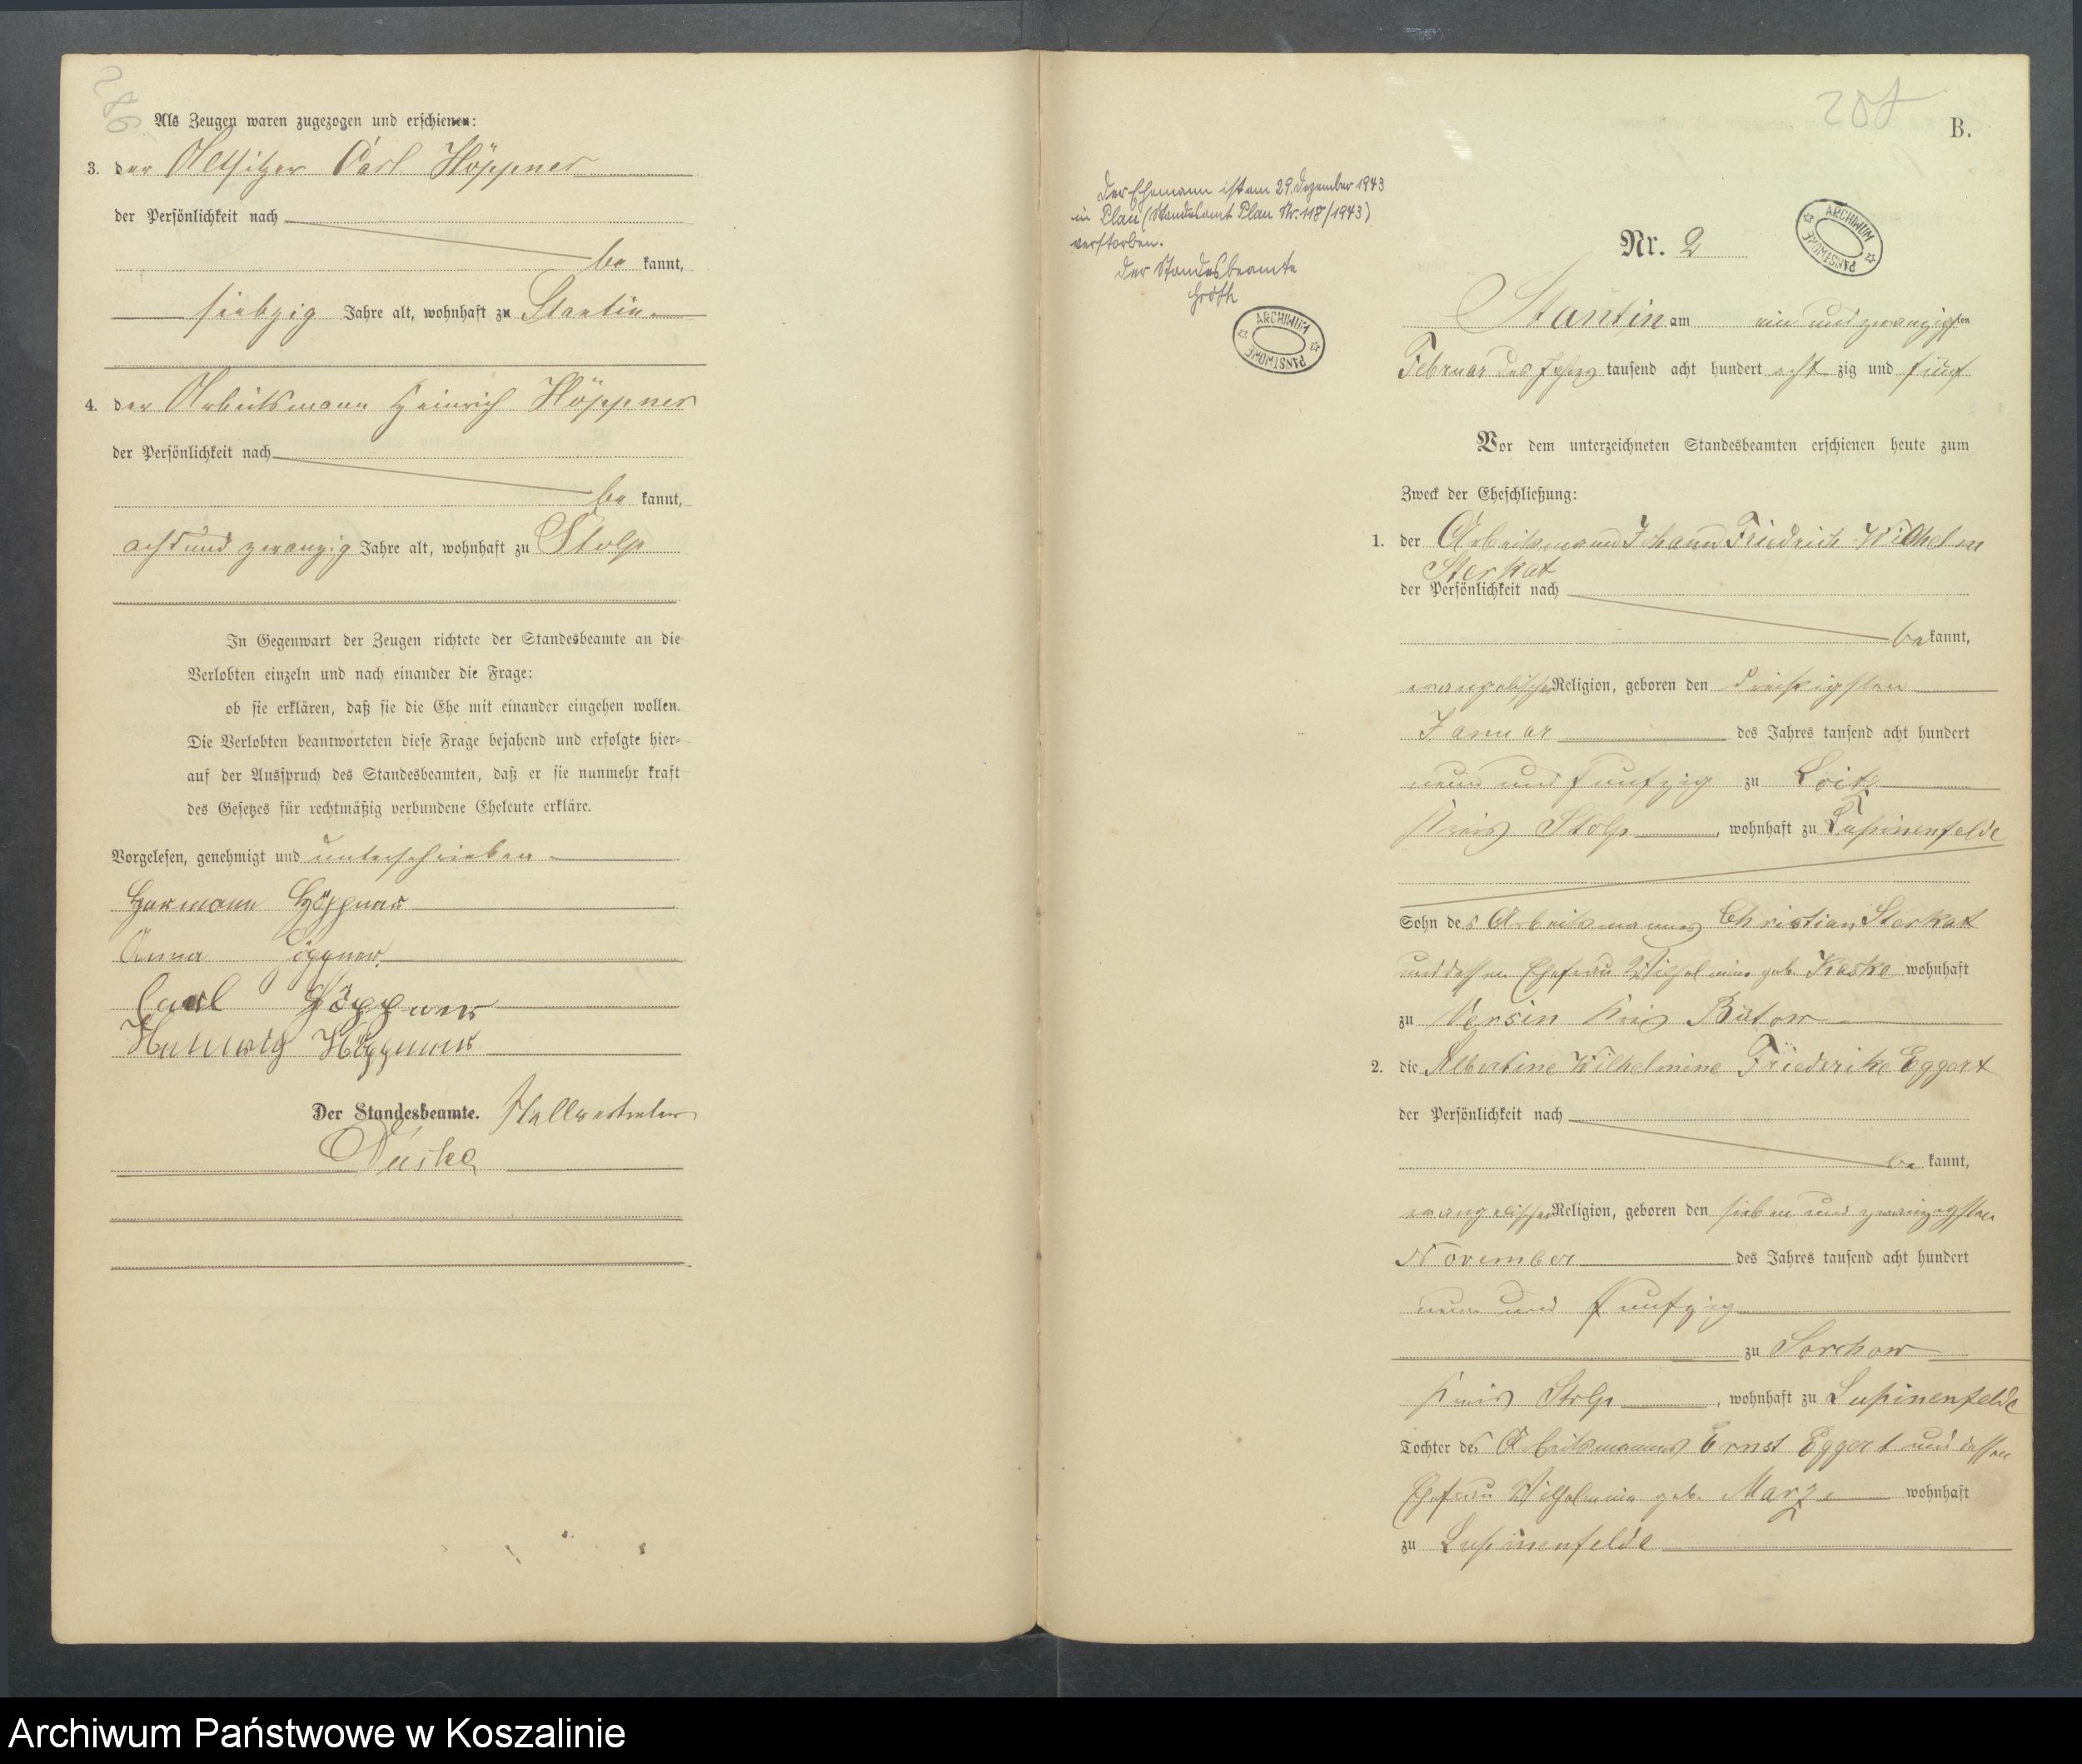 206
Als Zeugen waren zugezogen und erschienen:
3. der Altsitzer Carl Höppner
der Persönlichkeit nach
be kannt,
siebzig Jahre alt, wohnhaft zu Stantin
4. der Arbeitsmann Heinrich Höppner
der Persönlichkeit nach
be kannt,
acht und zwanzig Jahre alt, wohnhaft zu Stolp
In Gegenwart der Zeugen richtete der Standesbeamte an die
Verlobten einzeln und nach einander die Frage:
ob sie erklären, daß sie die Ehe mit einander eingehen wollen.
Die Verlobten beantworteten diese Frage bejahend und erfolgte hier-
auf der Ausspruch des Standesbeamten, daß er sie nunmehr kraft
des Gesetzes für rechtmäßig verbundene Eheleute erkläre.
Vorgelesen, genehmigt und unterschrieben
Hermann Höppner
Anna Höppner
Carl Höppner
Heinrich Höppner
Der Standesbeamte. Stellvertreter
207
B.
Der Ehemann ist am 29. Dezember 1943
in Plau (Standesamt Plau Nr. 118/1943)
verstorben.
Der Standesbeamte
Groth
ARCHIWUM PAŃSTWOWE
Nr. 2
ARCHIWUM PAŃSTWOWE
Stantin am ein und zwanzigsten
Februar des Jahres tausend acht hundert acht zig und fünf
Vor dem unterzeichneten Standesbeamten erschienen heute zum
Zweck der Eheschließung:
1. der Arbeitsmann Johann Friedrich Wilhelm
Sterkat
der Persönlichkeit nach
be kannt,
evangelischer Religion, geboren den dreißigsten
Januar des Jahres tausend acht hundert
neun und funfzig zu Loitz
Kreis Stolp, wohnhaft zu Lupinenfelde
Sohn des Arbeitsmannes Christian Sterkat
und dessen Ehefrau Wilhelmine geb. Kaske wohnhaft
zu Versin Kreis Bütow
2. die Albertine Wilhelmine Friederike Eggert
der Persönlichkeit nach
be kannt,
evangelischer Religion, geboren den sieben und zwanzigsten
November des Jahres tausend acht hundert
neun und funfzig
zu Sorchow
Kreis Stolp, wohnhaft zu Lupinenfelde
Tochter des Arbeitsmannes Ernst Eggert und dessen
Ehefrau Wilhelmine geb. Marze wohnhaft
zu Lupinenfelde
Archiwum Państwowe w Koszalinie